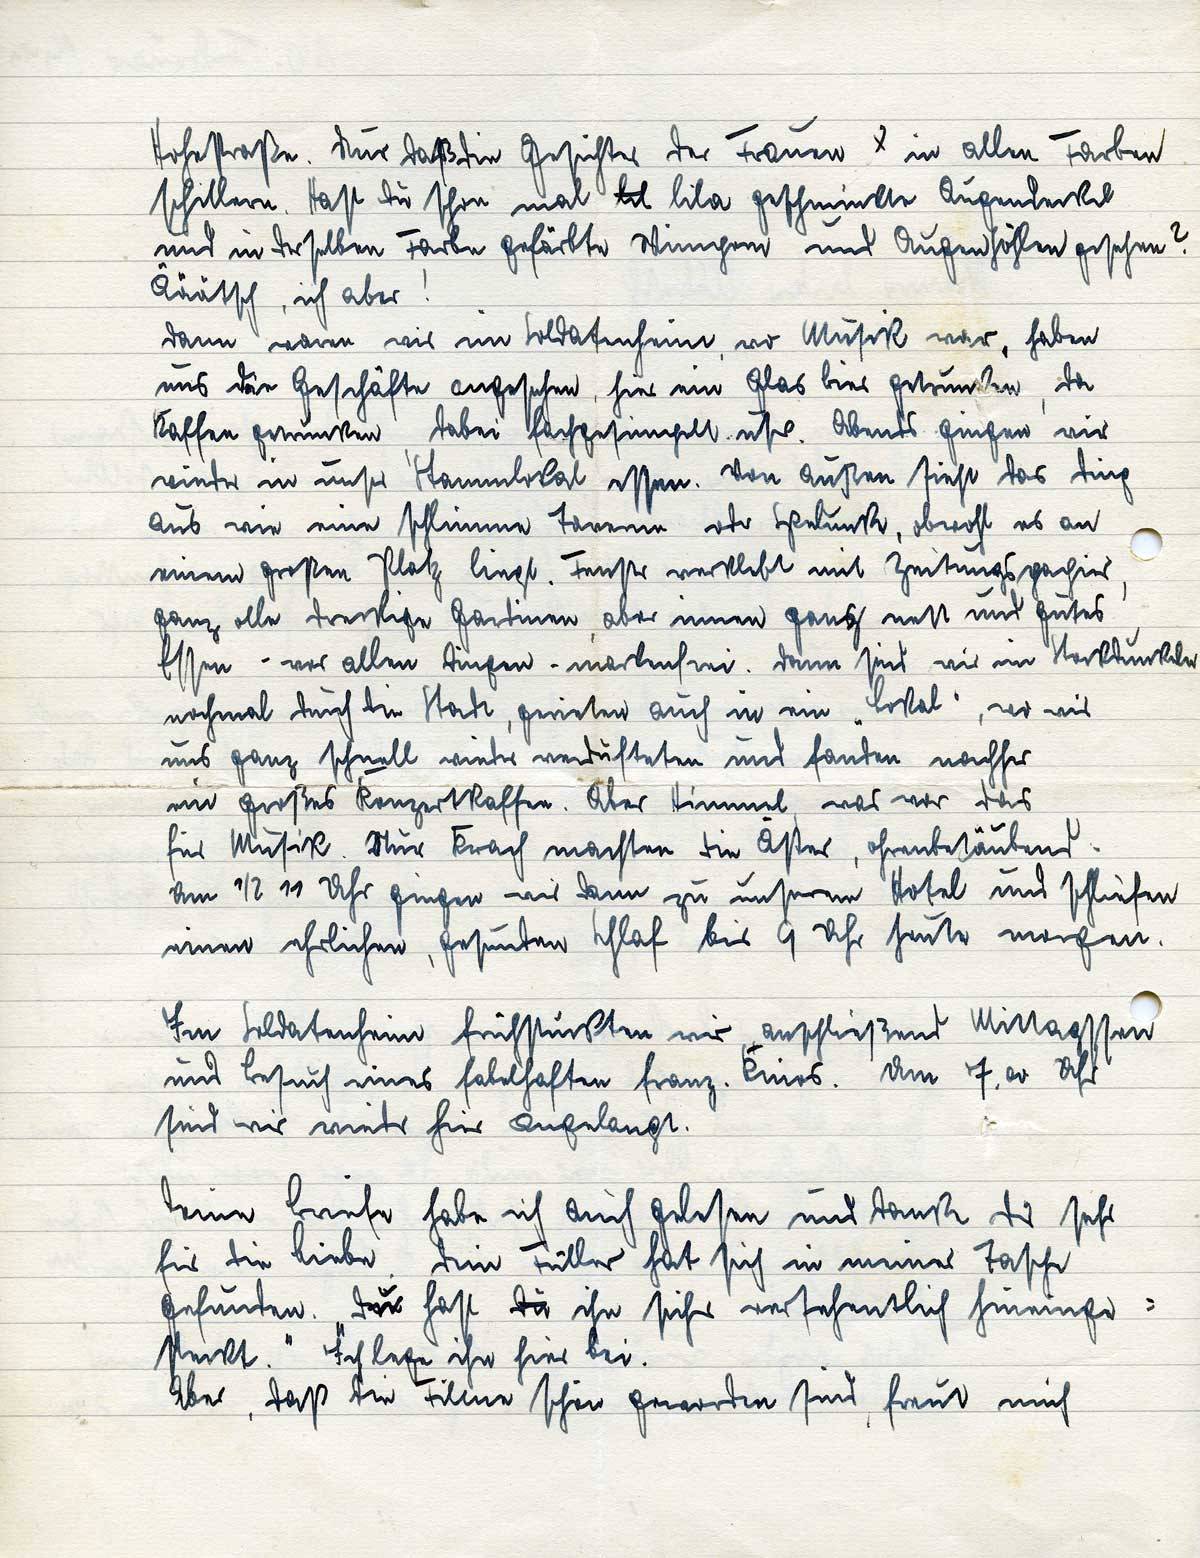 Hohestraße. Nur daß die Gesichter der Frauen x in allen Farben
schillern. Hast Du schon mal lila geschminkte Augendeckel
und in derselben Farbe gefärbte Wimpern und Augenhöhlen gesehen?
Ääätsch, ich aber!
Dann waren wir im Soldatenheim, wo Musik war, haben
uns die Geschäfte angesehen, hier ein Glas bier getrunken, da
Kaffee getrunken, dabei fachgesimpelt usw. Abends gingen wir
wieder in unser Stammlokal essen. Von Außen sieht das Ding
aus wie eine schlimme Taverne oder Spelunke, obwohl es an
einem großen Platz liegt. Fenster verklebt mit Zeitungspapier,
ganz olle dreckige Gardinen, aber innen ganz nett und gutes
Essen - vor allen Dingen - markenfrei. Dann sind wir im Stockdunkeln
nochmal durch die Stadt, gerieten auch in ein "Lokal", wo wir
uns ganz schnell wieder verdufteten und fanden nachher
ein großes Konzertkaffee. Aber Himmel, was war das
für Musik. Nur Krach machten die Äster, ohrenbetäubend.
Um 1/2 11 Uhr gingen wir dann zu unserem Hotel und schliefen
einen ehrlichen, gesunden Schlaf bis 9 Uhr heute morgen.
Im Soldatenheim frühstückten wir, anschließend Mittagessen
und Besuch eines fabelhaften franz. Kinos. Um 7.00 Uhr
sind wir wieder hier angelangt.
Deine Briefe habe ich auch gelesen und danke Dir sehr
für die Liebe. Dein Füller hat sich in meiner Tasche
gefunden. hast Du ihn sicher versehentlich hineinge=
steckt." Ich lege ihn hier bei.
Aber, daß die Filme schön geworden sind, freut mich